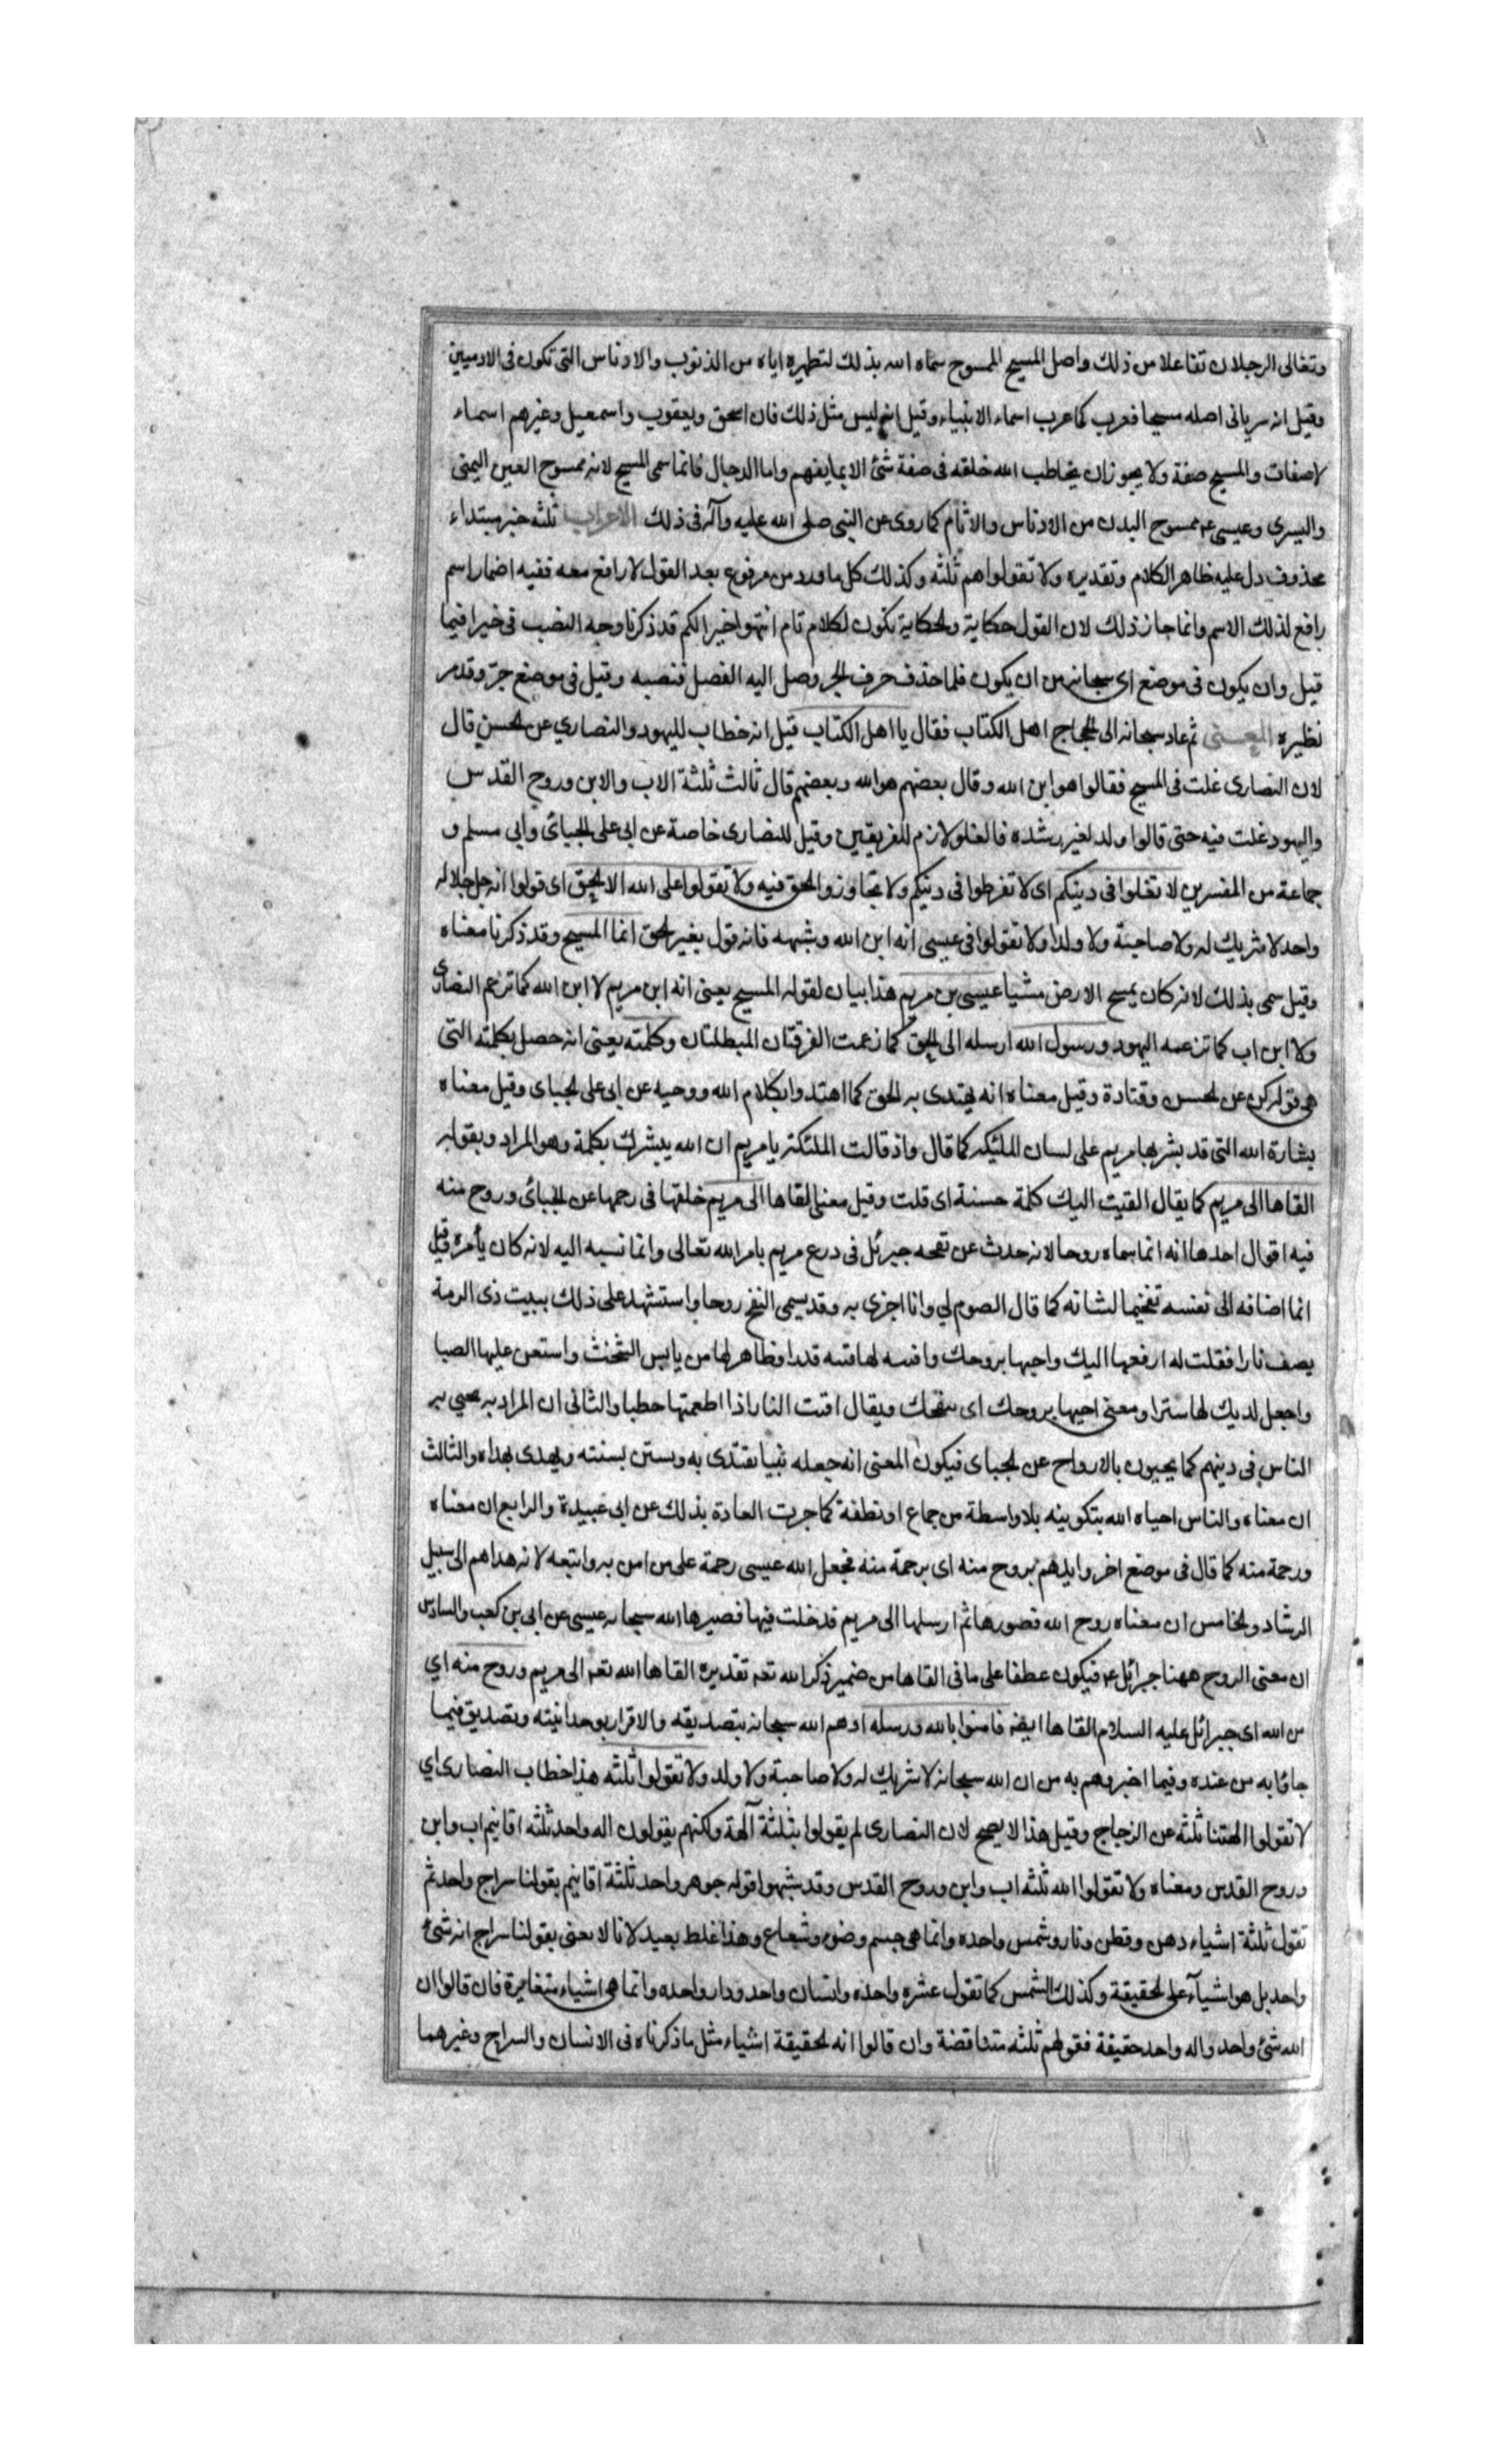 وتغالى الرجلان تفاعلا من ذلك واصل المسيح الممسوح سماه الله بذلك لتطهيره اياه من الذنوب والادناس التى تكون فى الادميين
وقيل انه سريانى اصله مسيحا فعرب كما عرب اسماء الانبياء وقيل انه ليس مثل ذلك فان اسحق ويعقوب واسمعيل وغيرهم اسماء
لاصفات والمسيح صفة ولا يجوز ان يخاطب الله خلقه فى صفة شئ الا بما يفهم واما الدجال فانما سمى المسيح لانه ممسوح العين اليمنى
واليسرى وعيسى ع ممسوح البدن من الادناس والاثام كما روى عن النبى صلى الله عليه وآله فى ذلك الاعراب ثلثه خبر مبتداء
محذوف دل عليه ظاهر الكلام وتقديره ولا تقولوا هم ثلثه وكذلك كل ما ورد من مرفوع بعد القول لا رافع معه ففيه اضمار اسم
رافع لذلك الاسم وانما جاز ذلك لان القول حكاية والحكاية تكون لكلام تام انتهوا خيرا لكم قد ذكرنا وجه النصب فى خيرا فيما
قيل وان يكون فى موضع اى سبحانه من ان يكون فلما حذف حرف الجر وصل اليه الفصل فنصبه وقيل فى موضع جر وقد مر
نظيره المعنى ثم عاد سبحانه الى الحجاج اهل الكتاب فقال يا اهل الكتاب قيل انه خطاب لليهود والنصارى عن الحسن قال
لان النصارى غلت فى المسيح فقالوا هو ابن الله وقال بعضهم هو الله وبعضهم قال ثالث ثلثة الاب والابن وروح القدس
واليهود غلت فيه حتى قالوا ولد لغير رشده فالغلو لازم للفريقين وقيل للنصارى خاصة عن ابى على الجبائى وابى مسلم و
جماعة من المفسرين لا تغلوا فى دينكم اى لا تفرطوا فى دينكم ولا تجاوزوا الحق فيه ولا تقولوا على الله الا الحق اى قولوا انه جل جلاله
واحد لا شريك له ولا صاحبة ولا ولدا ولا تقولوا فى عيسى انه ابن الله وشبهه فانه قول بغير الحق انما المسيح وقد ذكرنا معناه
وقيل سمى بذلك لانه كان يمسح الارض مشيا عيسى بن مريم هذا بيان لقوله المسيح يعنى انه ابن مريم لا ابن الله كما تزعم النصارى
ولا ابن اب كما تزعمه اليهود ورسول الله ارسله الى الحق كما زعمت الفرقتان المبطلتان وكلمته يعنى انه حصل بكلمته التى
هى قوله كن عن الحسن وقتادة وقيل معناه انه يهتدى به الخلق كما اهتدوا بكلام الله ووحيه عن ابى على الجباى وقيل معناه
بشارة الله التى قد بشر بها مريم على لسان الملئكه كما قال واذ قالت الملئكة يا مريم ان الله يبشرك بكلمة وهو المراد وبقوله
القاها الى مريم كما يقال القيت اليك كلمة حسنة اى قلت وقيل معنى القاها الى مريم خلقها فى رحمها عن الجبائى وروح منه
فيه اقوال احدها انه انما سماه روحا لانه حدث عن نفخه جبرئل فى درع مريم بامر الله تعالى وانما نسبه اليه لانه كان يأمره وقيل
انما اضافه الى نفسه تفخيما لشانه كما قال الصوم لي وانا اجزى به وقد يسمى النفخ روحا واستشهد على ذلك ببيت ذى الرمة
يصف نارا فقلت له ارفعها اليك واحيها بروحك واقسه لها قتسه قدرا وظاهر لها من يابس الشخت واستعن عليها الصبا
واجعل لديك لها سترا ومعنى احيها بروحك اى بنفخك ويقال اقت النار اذا اطعمتها حطبا والثانى ان المراد به يحيي به
الناس فى دينهم كما يحيون بالارواح عن الجباى فيكون المعنى انه جعله نبيا يقتدى به ويستن بسنته ويهدى بهداه والثالث
ان معناه والناس احياه الله بتكوينه بلا واسطة من جماع او نطفة كما جرت العادة بذلك عن ابى عبيدة والرابع ان معناه
ورحمة منه كما قال فى موضع اخر وايدهم بروح منه اى برحمة منه فجعل الله عيسى رحمة على من امن به واتبعه لانه هداهم الى سبيل
الرشاد والخامس ان معناه روح الله فصورها ثم ارسلها الى مريم فدخلت فيها فصيرها الله سبحانه عيسى عن ابى بن كعب والسادس
ان معنى الروح ههنا جبرائل ع فيكون عطفا على ما فى القاها من ضمير ذكر الله تعه تقديره القاها الله تعه الى مريم وروح منه اي
من الله اى جبرائل عليه السلام القاها ايضه فامنوا بالله ورسله امرهم الله سبحانه بتصديقه والاقرار بوحدانيته وتصديق فيما
جاؤا به من عنده وفيما اخبروهم به من ان الله سبحانه لا شريك له ولا صاحبة ولا ولد ولا تقولوا ثلثه هذا خطاب النصارى اي
لا تقولوا الهتنا ثلثه عن الزجاج وقيل هذا لا يصح لان النصارى لم يقولوا بثلثة آلهة ولكنهم يقولون اله واحد ثلثه اقانيم اب وابن
وروح القدس ومعناه ولا تقولوا الله ثلثه اب وابن وروح القدس وقد شبهوا قوله جوهر واحد ثلثة اقانيم بقولنا سراج واحد ثم
تقول ثلثة اشياء دهن وقطن ونار وشمس واحده وانما هى جسم وضوء وشعاع وهذا غلط بعيد لانا لا نعنى بقولنا سراج انه شئ
واحد بل هو اشيآء على الحقيقة وكذلك الشمس كما تقول عشره واحده وانسان واحد ودار واحده وانما هى اشياء متغايرة فان قالوا ان
الله شئ واحد واله واحد حقيقة فقولهم ثلثه متناقضة وان قالوا انه الحقيقة اشياء مثل ما ذكرناه فى الانسان والسراج وغيرهما